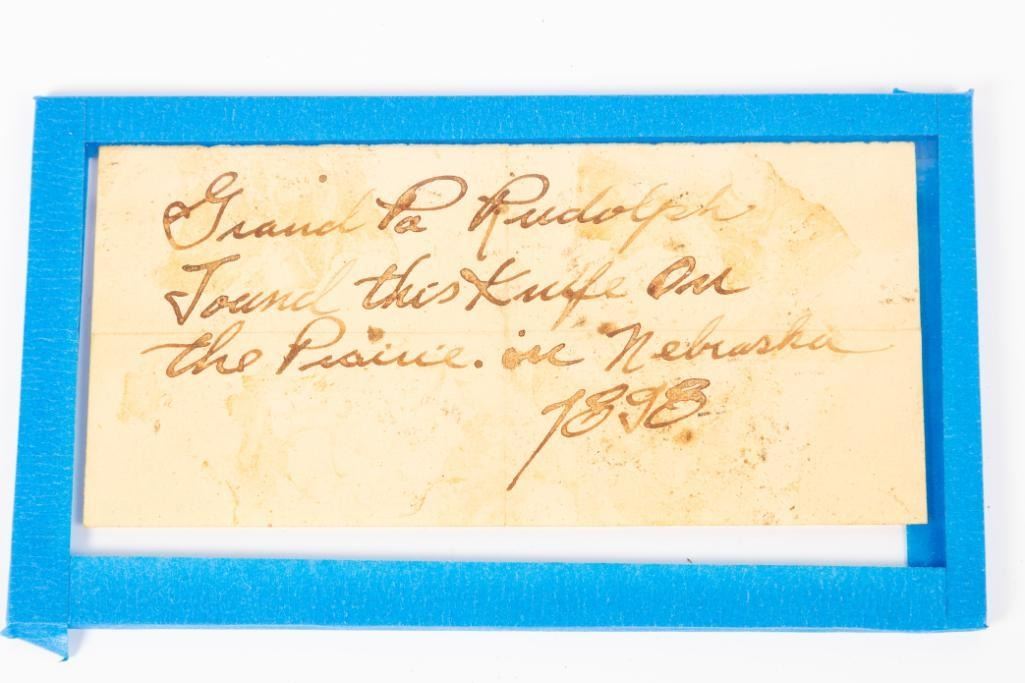 Grand Pa Rudolph
Found this Knife On
the Prairie. in Nebraska
1898